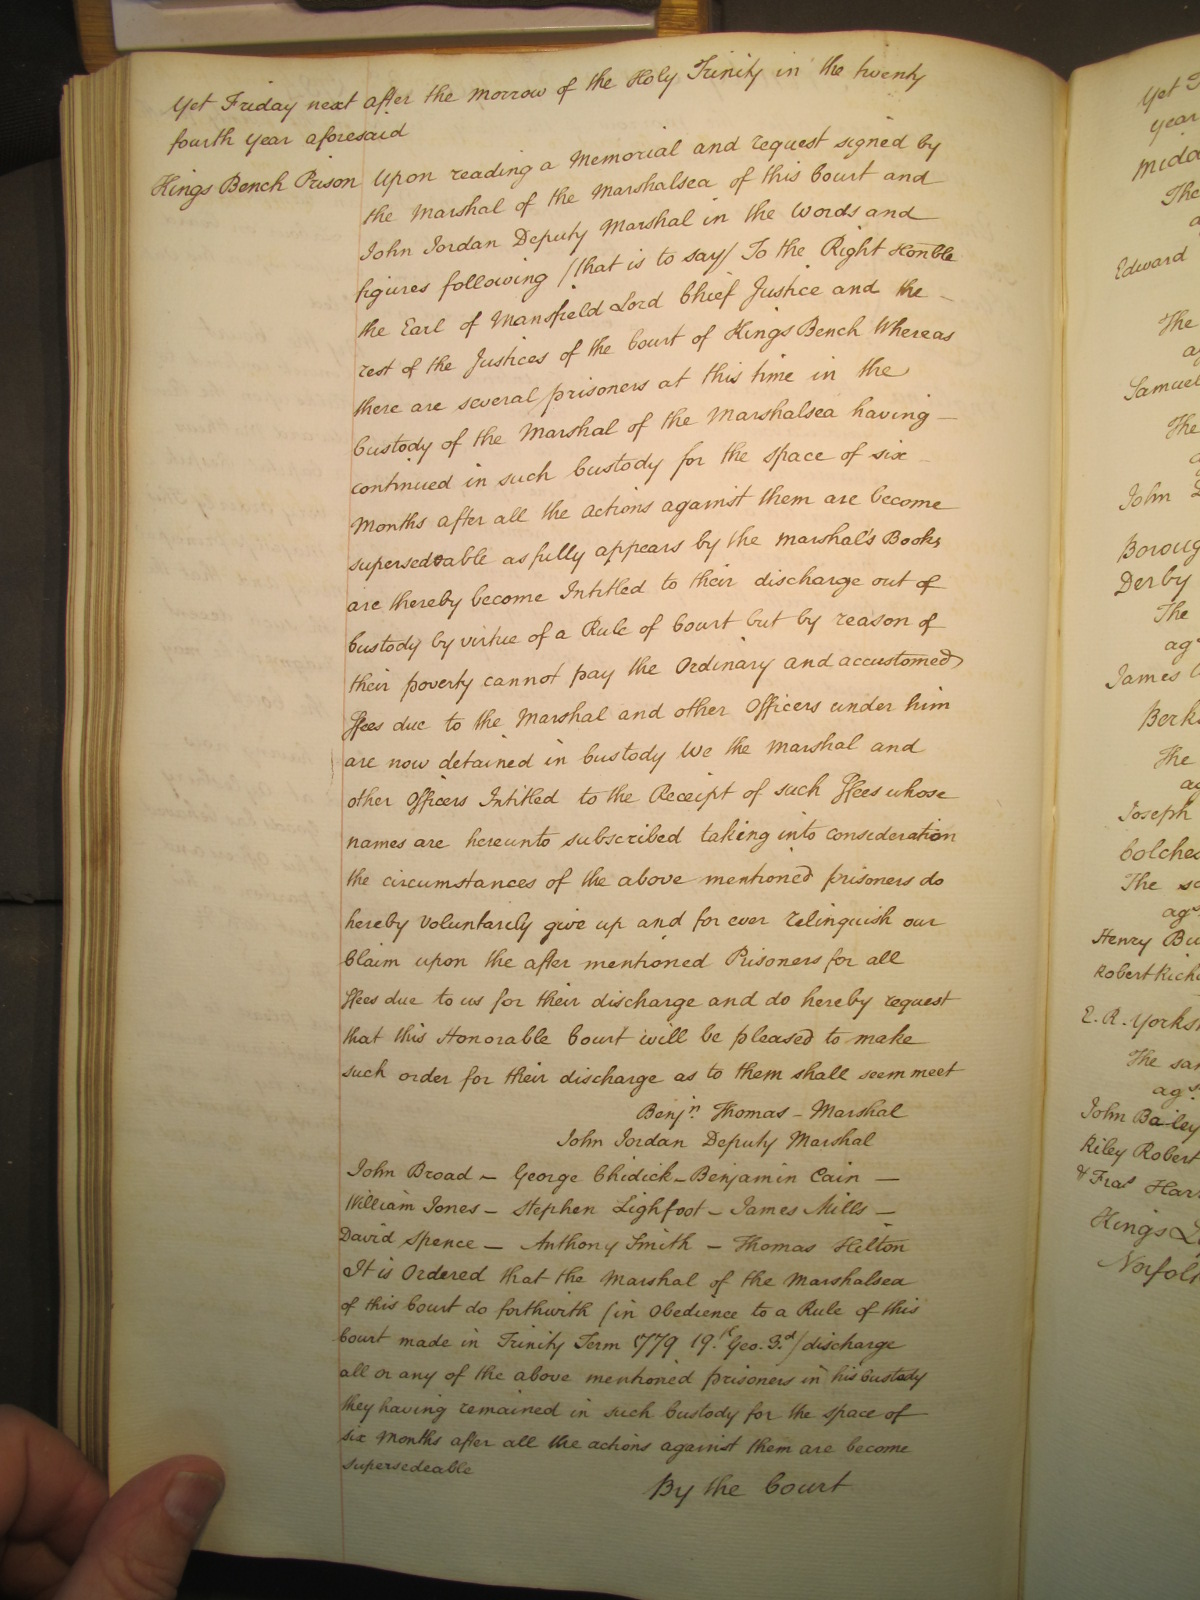 Yet Friday next after the morrow of the Holy Trinity in the twenty
fourth year aforesaid
Kings Bench Prison Upon reading a Memorial and request signed by
the Marshal of the Marshalsea of this Court and
John Jordan Deputy Marshal in the Words and
figures following /that is to say/ To the Right Honble
the Earl of Mansfield Lord Chief Justice and the
rest of the Justices of the Court of Kings Bench Whereas
there are several prisoners at this time in the
Custody of the Marshal of the Marshalsea having
continued in such Custody for the space of six
Months after all the actions against them are become
supersedeable as fully appears by the Marshal's Books
are thereby become Intitled to their discharge out of
Custody by virtue of a Rule of Court but by reason of
their poverty cannot pay the Ordinary and accustomed
ffees due to the Marshal and other Officers under him
are now detained in Custody We the Marshal and
other Officers Intitled to the Receipt of such ffees whose
names are hereunto subscribed taking into consideration
the circumstances of the above mentioned prisoners do
hereby Voluntarily give up and for ever relinquish our
Claim upon the after mentioned Prisoners for all
ffees due to us for their discharge and do hereby request
that this Honorable Court will be pleased to make
such order for their discharge as to them shall seem meet
Benjn. Thomas - Marshal
John Jordan Deputy Marshal
John Broad - George Chidick - Benjamin Cain -
William Jones - Stephen Lighfoot - James Mills -
David Spence - Anthony Smith - Thomas Hilton
It is Ordered that the Marshal of the Marshalsea
of this Court do forthwith /in Obedience to a Rule of this
Court made in Trinity Term 1779 19.th Geo. 3.d/ discharge
all or any of the above mentioned prisoners in his Custody
they having remained in such Custody for the space of
six Months after all the actions against them are become
supersedeable
By the Court
Yet
year
The
Edward
The
Samuel
The
John
Derby
The
ag
James
The
Joseph
The
ags.
Henry
E. R. Yorksh
The
ags.
John Bailey
Riley Robert
Kings